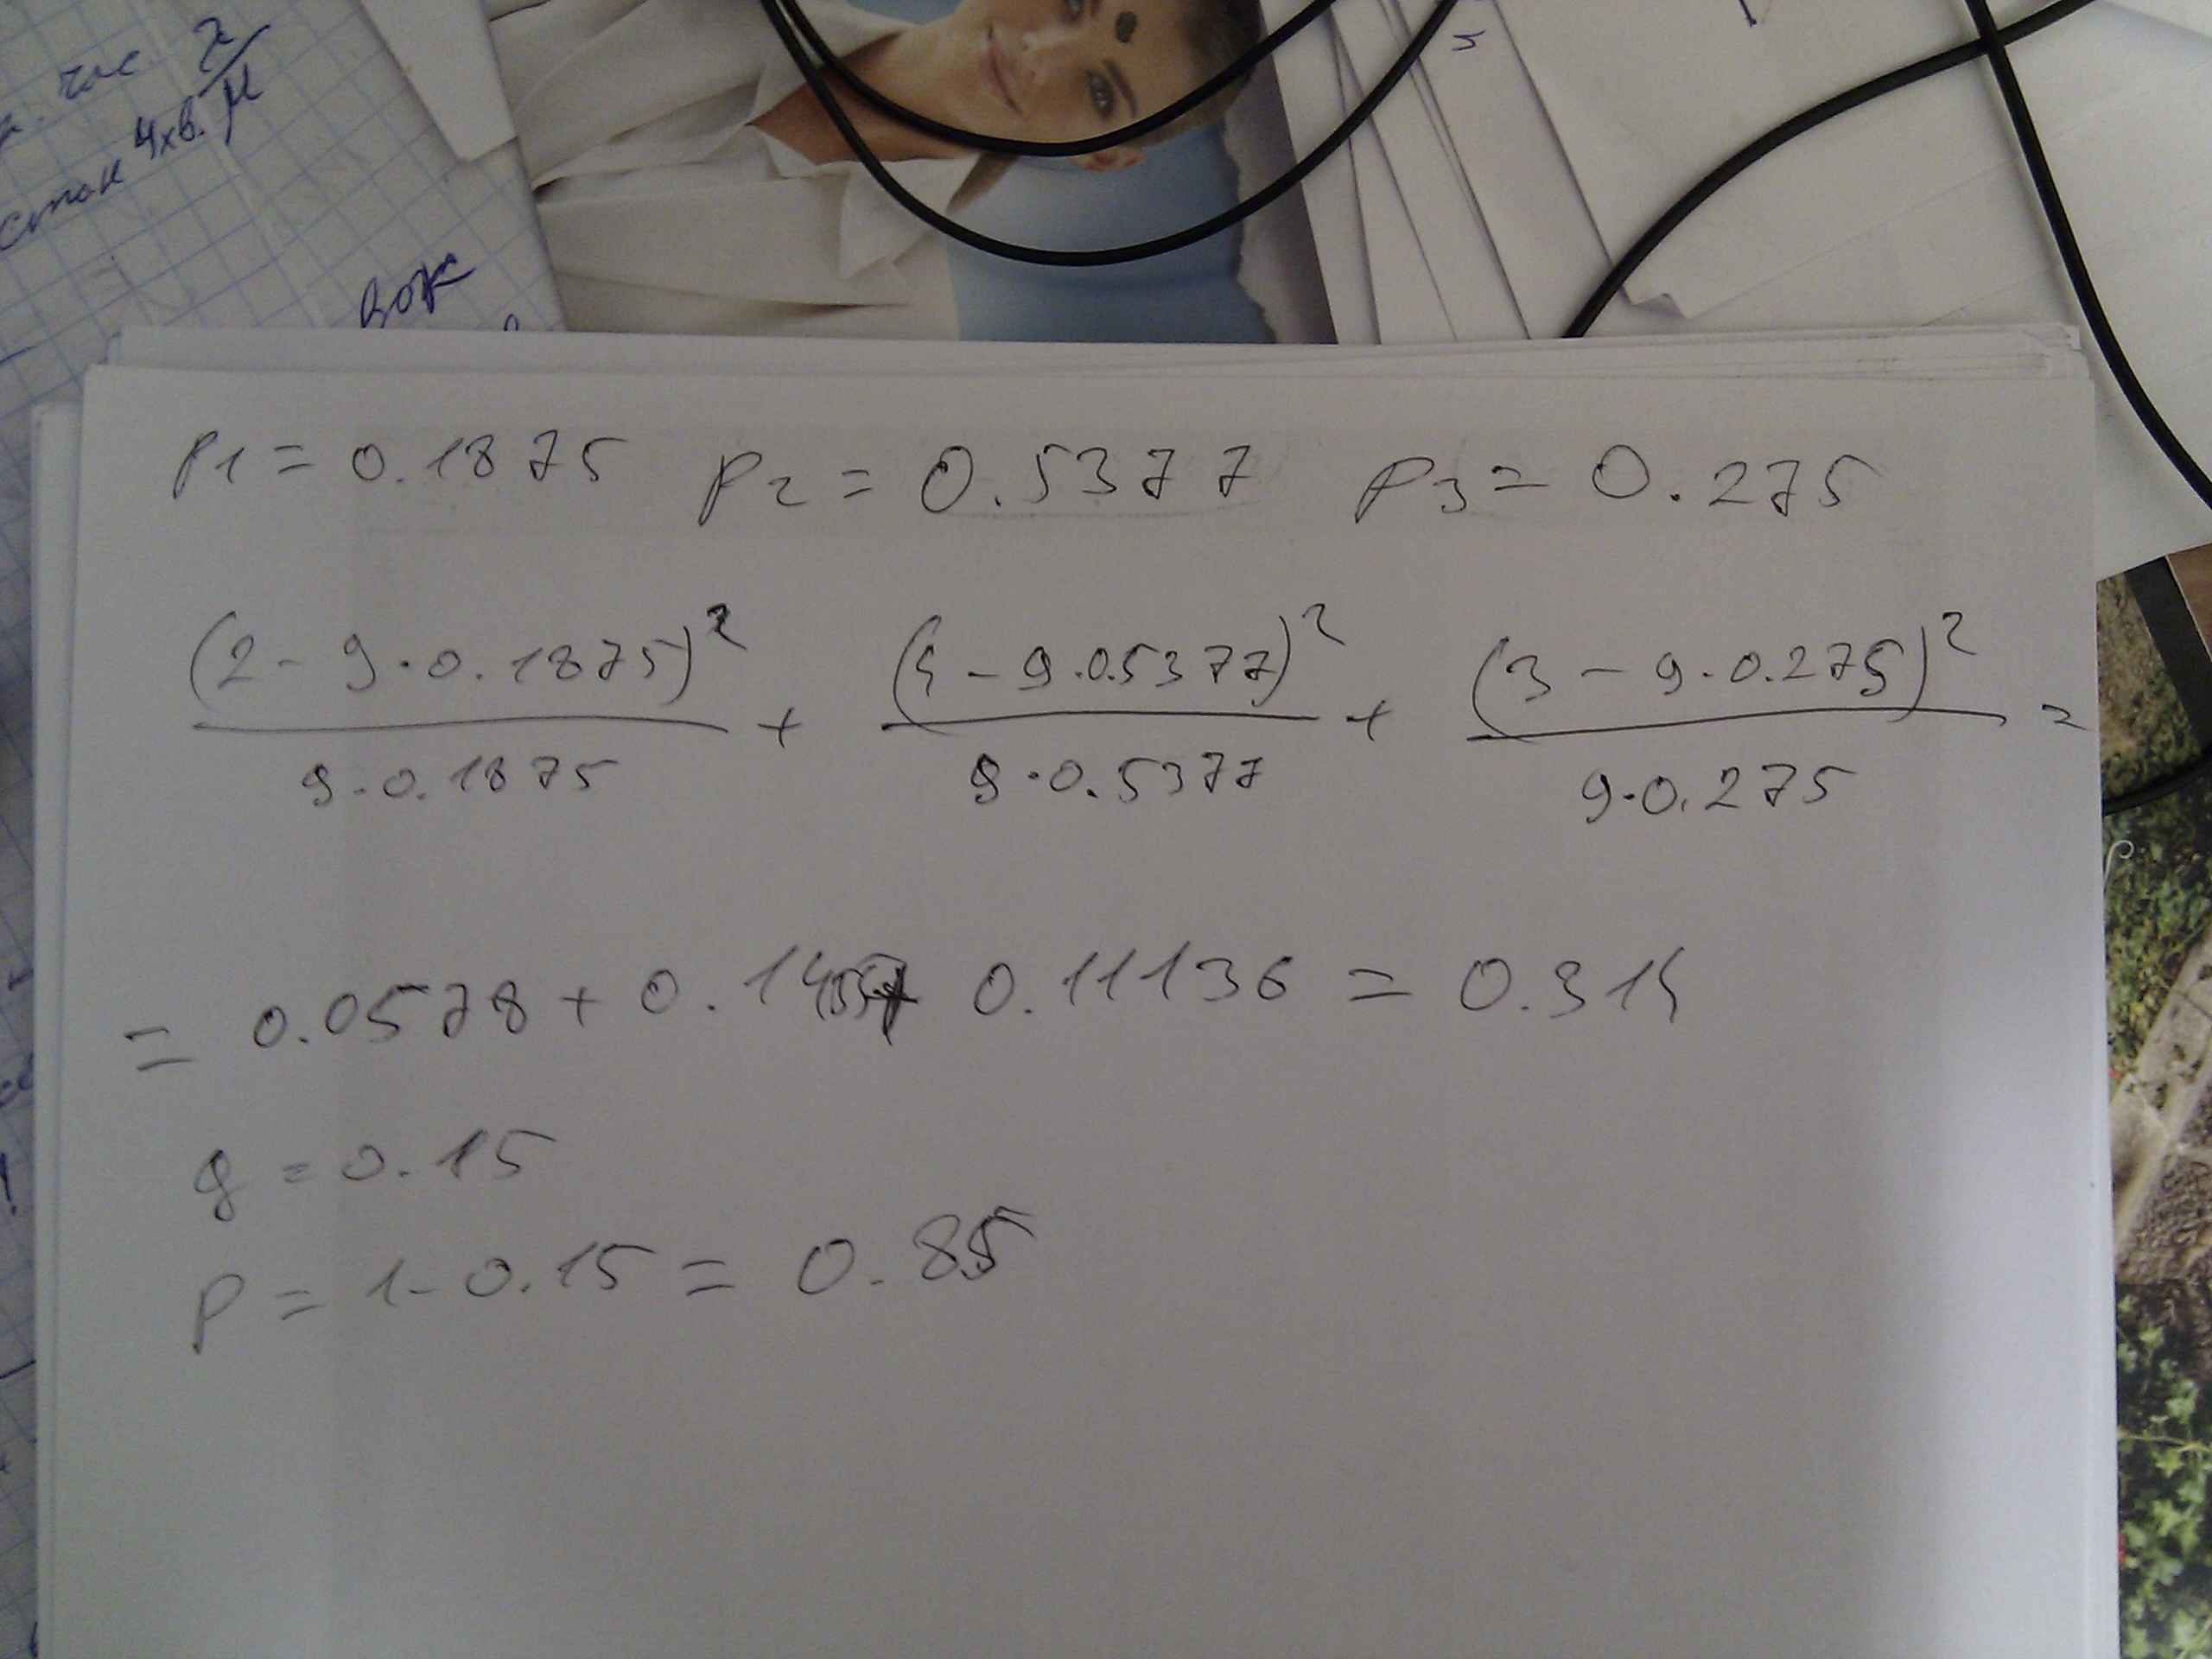 час λ/μ
стан 4хв.
P1 = 0.1875 P2 = 0.5377 P3 = 0.275
(2 - 9·0.1875)²/(9·0.1875) + (4 - 9·0.5377)²/(9·0.5377) + (3 - 9·0.275)²/(9·0.275) =
= 0.0578 + 0.145 + 0.11136 = 0.314
g = 0.15
P = 1 - 0.15 = 0.85